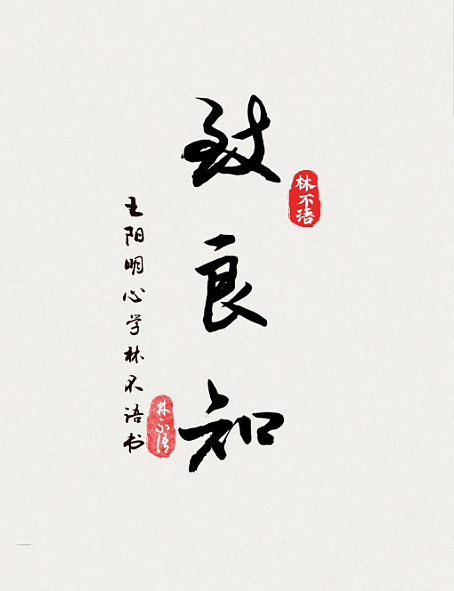 致良知
林不语
王阳明心学林不语书
林不语